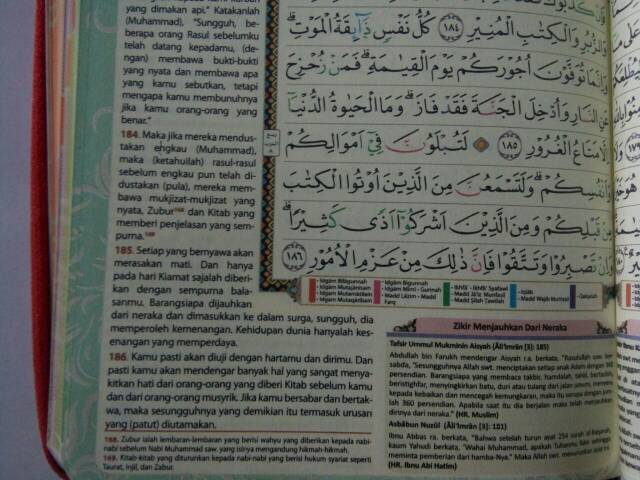 yang dimakan api." Katakanlah
(Muhammad), "Sungguh, be-
berapa orang Rasul sebelumku
telah datang kepadamu, (de-
ngan) membawa bukti-bukti
yang nyata dan membawa apa
yang kamu sebutkan, tetapi
mengapa kamu membunuhnya
jika kamu orang-orang yang
benar."
184. Maka jika mereka mendus-
takan engkau (Muhammad),
maka (ketahuilah) rasul-rasul
sebelum engkau pun telah di-
dustakan (pula), mereka mem-
bawa mukjizat-mukjizat yang
nyata, Zubur¹⁶⁸ dan Kitab yang
memberi penjelasan yang sem-
purna.¹⁶⁹
185. Setiap yang bernyawa akan
merasakan mati. Dan hanya
pada hari Kiamat sajalah diberi-
kan dengan sempurna bala-
sanmu. Barangsiapa dijauhkan
dari neraka dan dimasukkan ke dalam surga, sungguh, dia
memperoleh kemenangan. Kehidupan dunia hanyalah kes-
enangan yang memperdaya.
186. Kamu pasti akan diuji dengan hartamu dan dirimu. Dan
pasti kamu akan mendengar banyak hal yang sangat menya-
kitkan hati dari orang-orang yang diberi Kitab sebelum kamu
dan dari orang-orang musyrik. Jika kamu bersabar dan bertak-
wa, maka sesungguhnya yang demikian itu termasuk urusan
yang (patut) diutamakan.
168. Zubur ialah lembaran-lembaran yang berisi wahyu yang diberikan kepada nabi-
nabi sebelum Nabi Muhammad saw. yang isinya mengandung hikmah-hikmah.
169. Kitab-kitab yang diturunkan kepada nabi-nabi yang berisi hukum syariat seperti
Taurat, Injil, dan Zabur.
وَالزُّبُرِ وَالْكِتٰبِ الْمُنِيْرِ ١٨٤ كُلُّ نَفْسٍ ذَاۤىِٕقَةُ الْمَوْتِۗ
وَاِنَّمَا تُوَفَّوْنَ اُجُوْرَكُمْ يَوْمَ الْقِيٰمَةِۗ فَمَنْ زُحْزِحَ
عَنِ النَّارِ وَاُدْخِلَ الْجَنَّةَ فَقَدْ فَازَۗ وَمَا الْحَيٰوةُ الدُّنْيَآ
اِلَّا مَتَاعُ الْغُرُوْرِ ١٨٥ لَتُبْلَوُنَّ فِيْٓ اَمْوَالِكُمْ
وَاَنْفُسِكُمْۗ وَلَتَسْمَعُنَّ مِنَ الَّذِيْنَ اُوْتُوا الْكِتٰبَ
مِنْ قَبْلِكُمْ وَمِنَ الَّذِيْنَ اَشْرَكُوْٓا اَذًى كَثِيْرًاۗ
وَاِنْ تَصْبِرُوْا وَتَتَّقُوْا فَاِنَّ ذٰلِكَ مِنْ عَزْمِ الْاُمُوْرِ ١٨٦
Zikir Menjauhkan Dari Neraka
Tafsir Ummul Mukminin Aisyah (Âli'Imrân [3]: 185)
Abdullah bin Farukh mendengar Aisyah r.a. berkata, "Rasulullah saw. ber-
sabda, "Sesungguhnya Allah swt. menciptakan setiap anak Adam dengan 360
persendian. Barangsiapa yang membaca takbir, hamdalah, tahlil, bertasbih,
beristighfar, menyingkirkan batu, duri atau tulang dari jalan umum, menyeru
kepada kebaikan dan mencegah kemungkaran, maka itu serupa dengan jum-
lah 360 persendian. Apabila saat itu dia berjalan maka telah menjauhkan
dirinya dari neraka." (HR. Muslim)
Asbâbun Nuzûl (Âli'Imrân [3]: 181)
Ibnu Abbas r.a. berkata, "Bahwa setelah turun ayat 254 surah al-Baqarah,
kaum Yahudi berkata, "Wahai Muhammad, apakah Tuhanmu fakir sehingga
meminta pemberian dari hamba-Nya." Maka Allah swt. menurunkan ayat
(HR. Ibnu Abi Hatim)